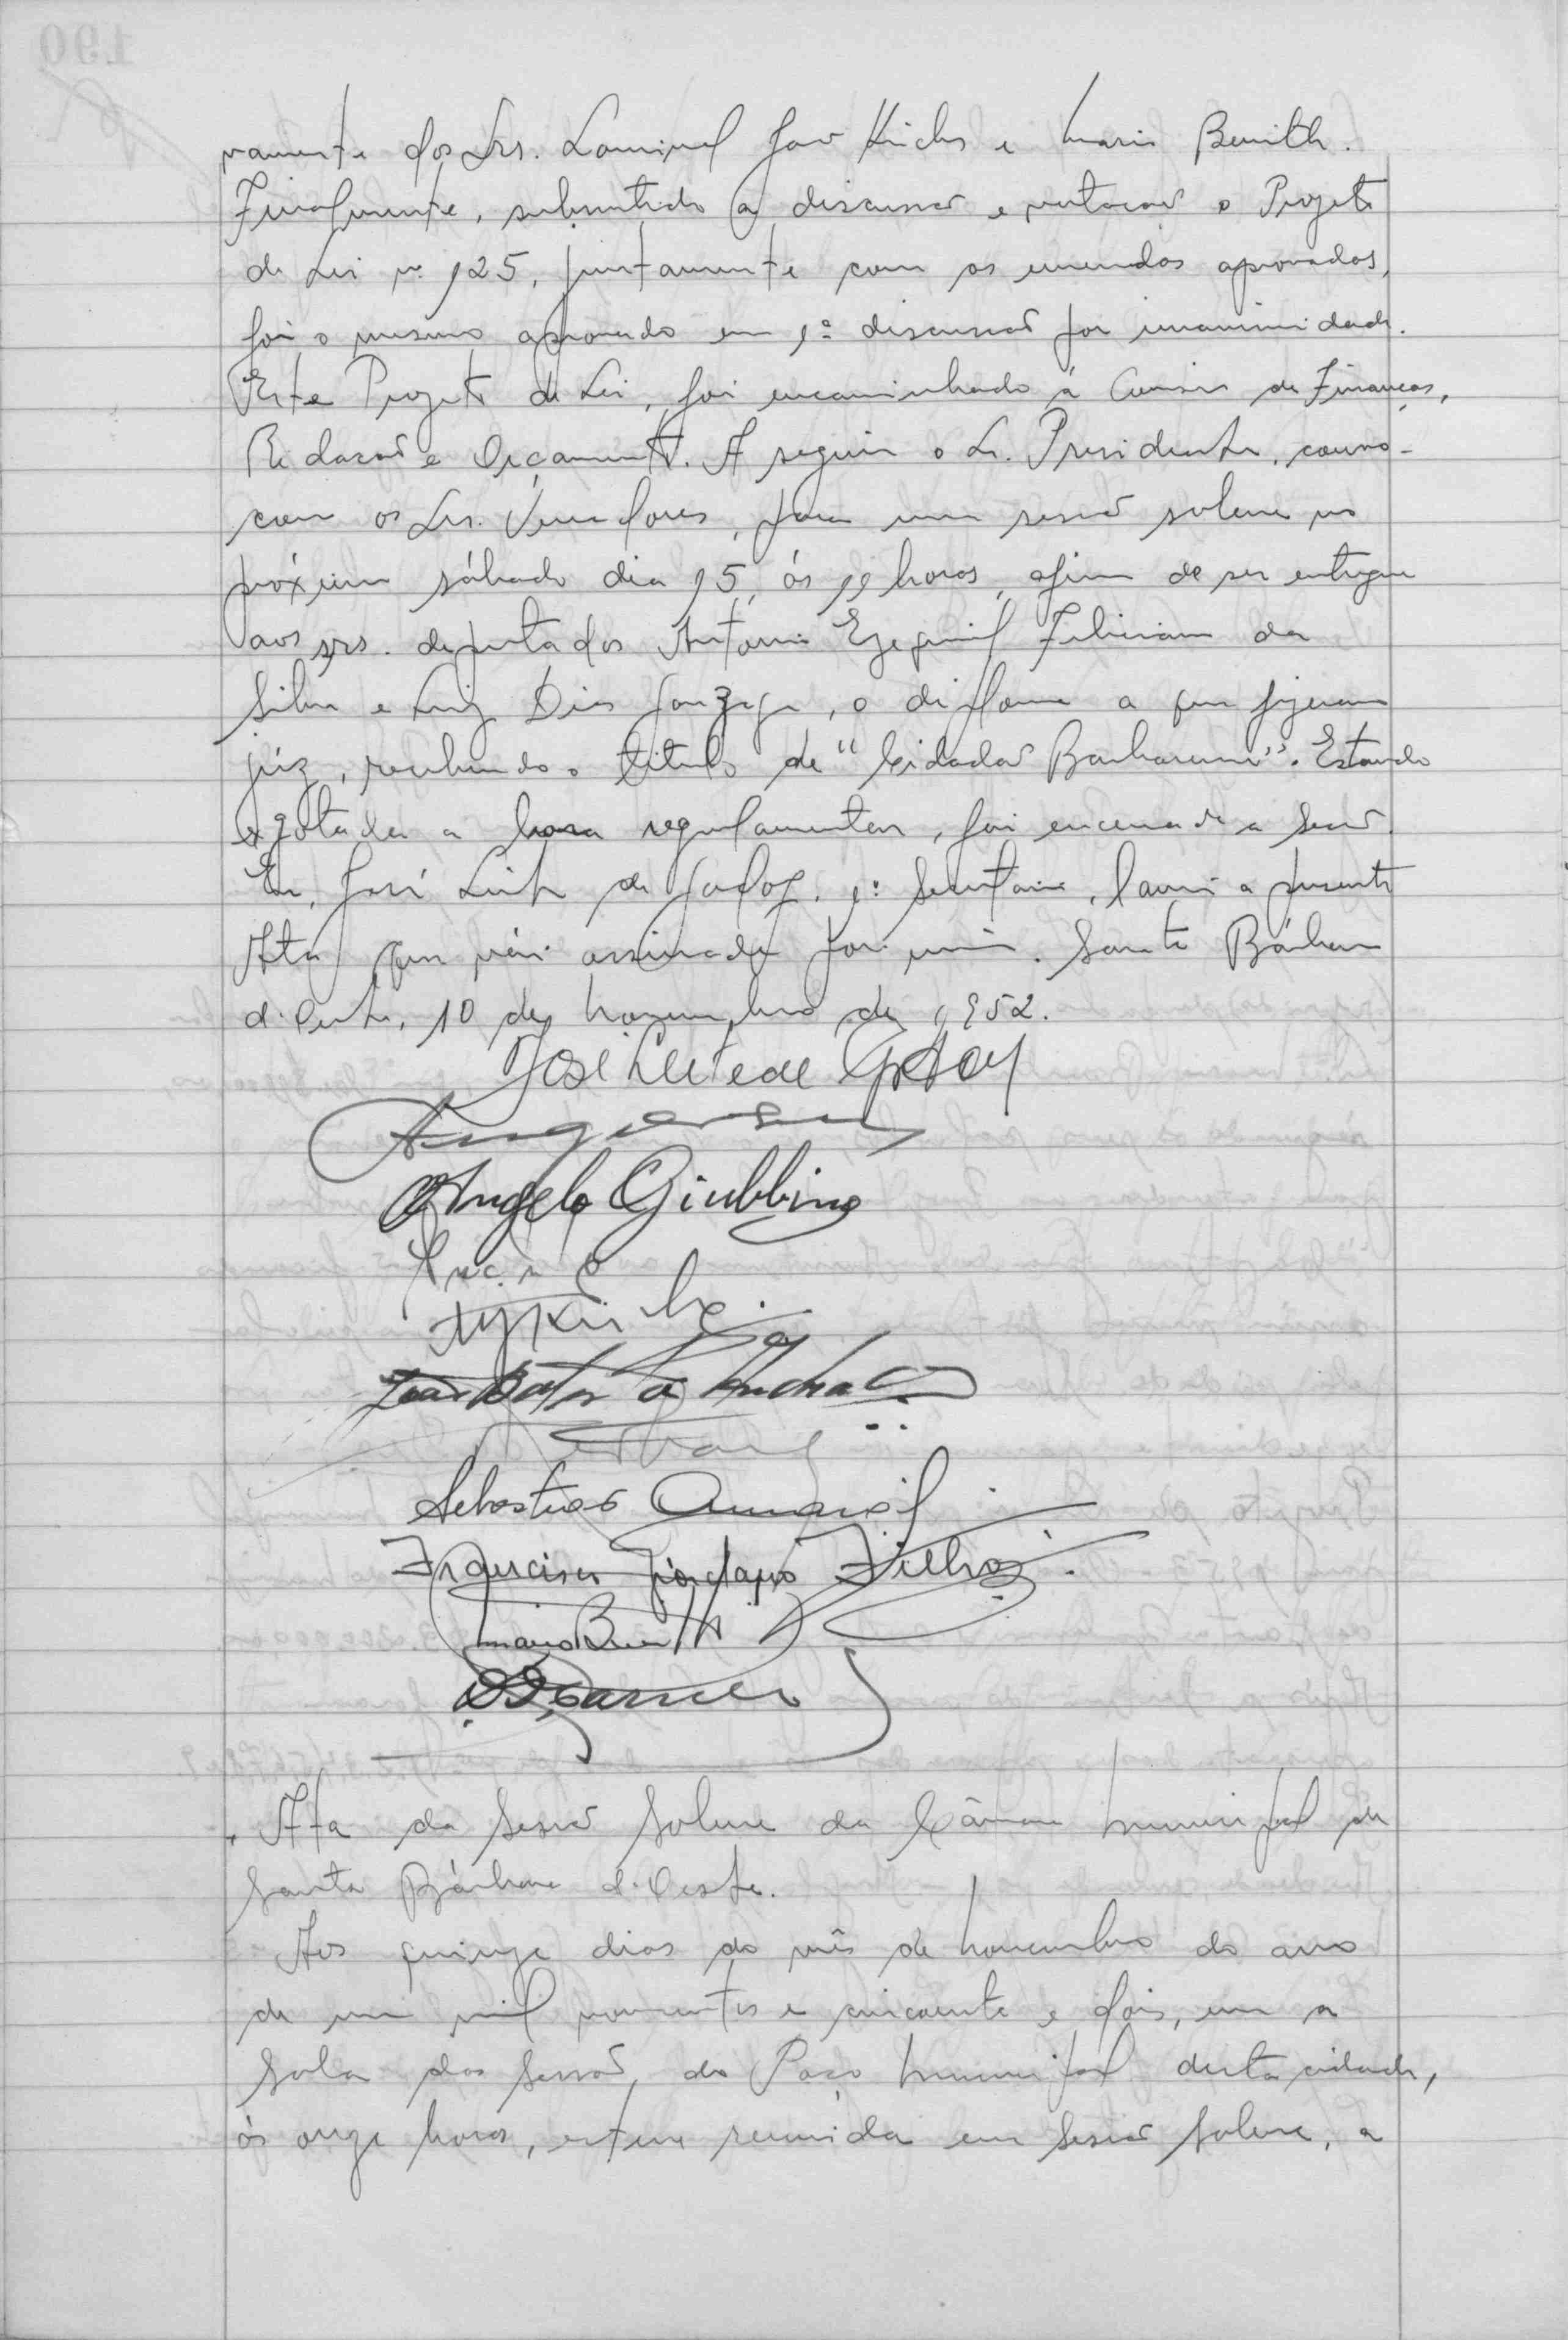 vamente dos Srs. e Mario Benith.
Finalmente, submetido a discussão e votação o Projeto
de Lei nº 125, juntamente com as emendas aprovadas,
foi o mesmo aprovado em 1ª discussão por unanimidade.
Este Projeto de Lei, foi encaminhado à Comissão de Finanças,
Redação e Orçamento. A seguir o Sr. Presidente, convo-
cou os Srs. Vereadores, para uma sessão solene no
próximo sábado dia 15, às 11 horas, afim de ser entregue
aos srs. deputados Antonio Ezequiel Feliciano da
Silva e Luiz Dias Gonzaga, o diploma a que fizeram
júz, recebendo o titulo de "Cidadão Barbarense". Estando
esgotada a hora regulamentar, foi encerrada a Sessão.
Eu, José Leite de Godoy, 1º Secretario, lavrei a presente
Ata que vai assinada por mim. Santa Bárbara
d'Oeste, 10 de Novembro de 1952.
José Leite de Godoy
Angelo Giubbina
Sebastião Amaral
Francisco Giordano Filho
Mario Benith
Ata da Sessão Solene da Câmara Municipal de
Santa Bárbara d'Oeste.
Aos quinze dias do mês de Novembro do ano
de um mil novecentos e cincoenta e dois, em a
Sala das Sessões, do Paço Municipal desta cidade,
às onze horas, esteve reunida em Sessão Solene, a